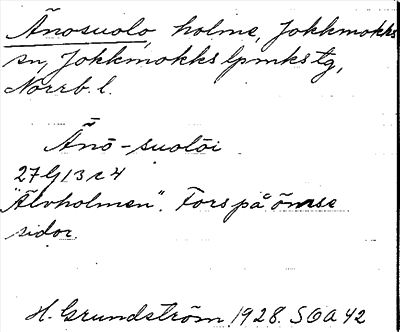 Ānosuolo, holme, Jokkmokks
sn, Jokkmokks lpmks tg,
Norrb. l.
Ā̃nō-suolōi
27G/3c4
"Älvholmen". Fors på ömse
sidor.
H. Grundström 1928. SOA 42